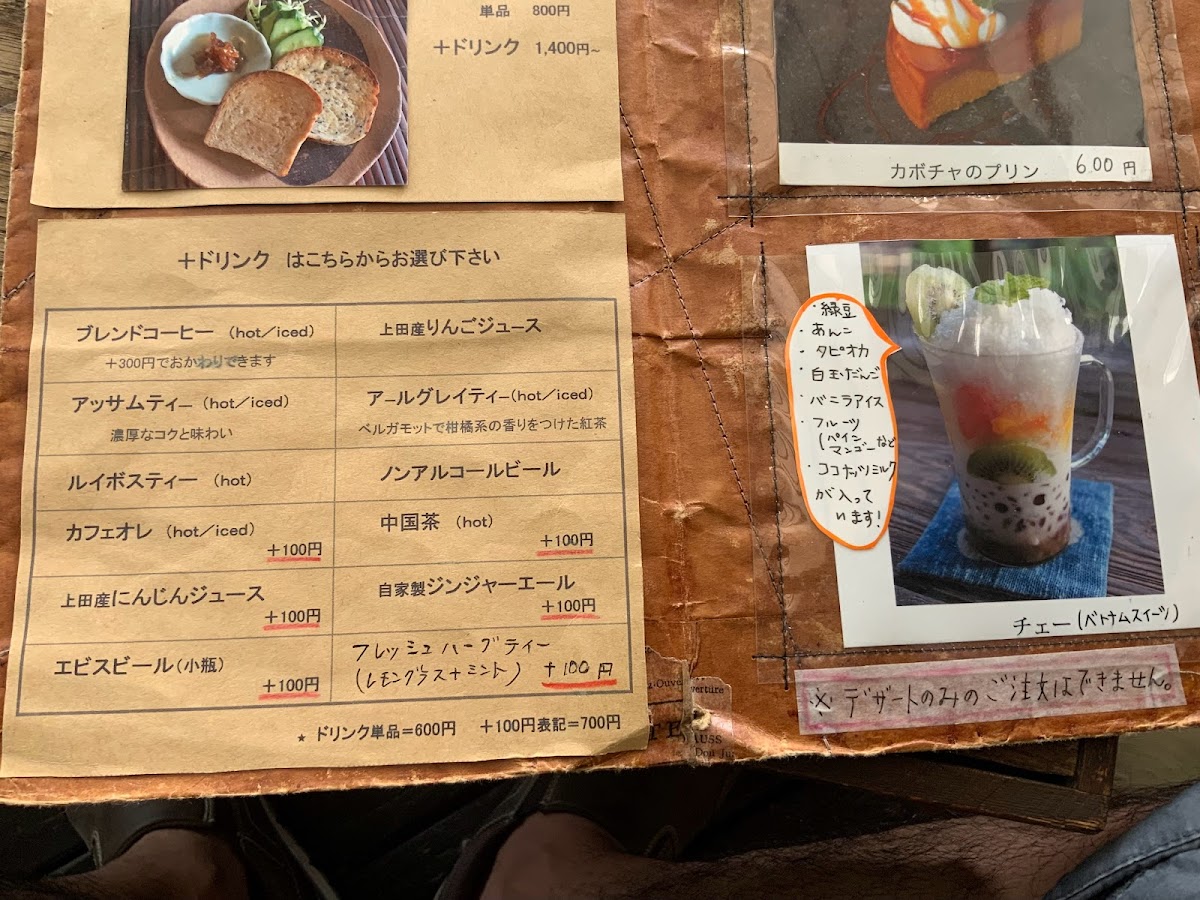 単品 800円
+ドリンク 1,400円~
+ドリンク はこちらからお選び下さい
ブレンドコーヒー (hot/iced)
+300円でおかわりできます
上田産りんごジュース
アッサムティー (hot/iced)
濃厚なコクと味わい
アールグレイティー(hot/iced)
ベルガモットで柑橘系の香りをつけた紅茶
ルイボスティー (hot)
ノンアルコールビール
カフェオレ (hot/iced)
+100円
中国茶 (hot)
+100円
上田産にんじんジュース
+100円
自家製ジンジャーエール
+100円
エビスビール(小瓶)
+100円
フレッシュハーブティー
(レモングラス+ミント) +100円
★ ドリンク単品=600円 +100円表記=700円
カボチャのプリン 600円
・緑豆
・あんこ
・タピオカ
・白玉だんご
・バニラアイス
・フルーツ
(パイン
マンゴーなど
・ココナッツミルク
が入って
います!
チェー(ベトナムスイーツ)
※デザートのみのご注文はできません。